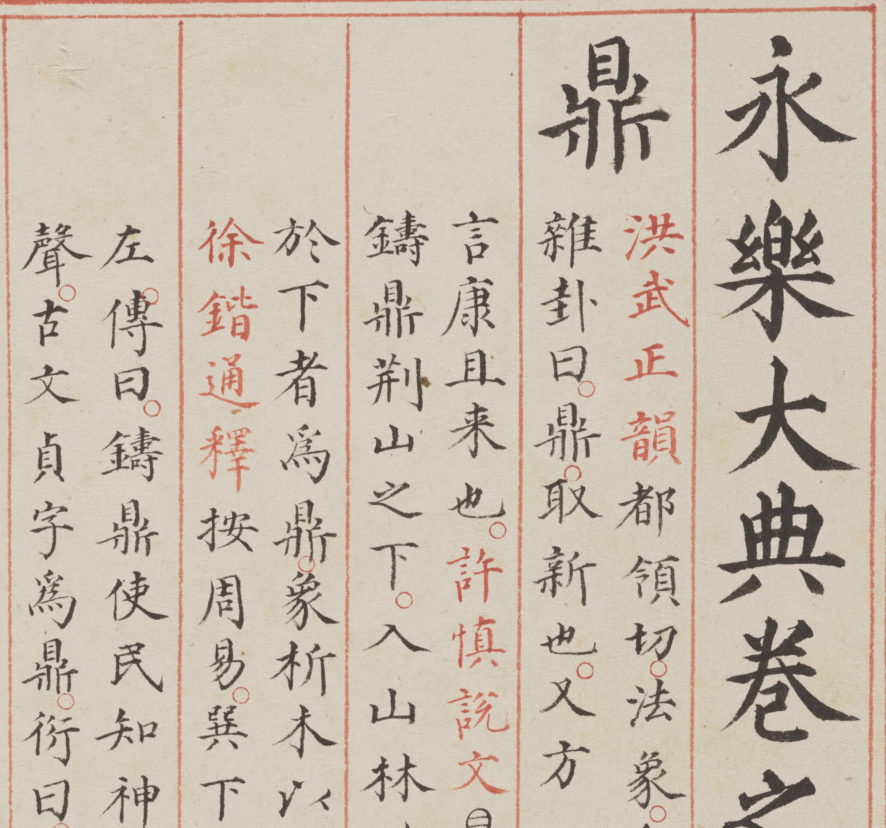 永樂大典卷之
鼎
洪武正韻都領切。法象。
雜卦曰。鼎。取新也。又方
言康且来也。許慎說文
鑄鼎荆山之下。入山林
於下者為鼎。象析木以
徐鍇通釋按周易。巽下
左傳曰。鑄鼎使民知神
聲。古文貞字為鼎。衍曰。